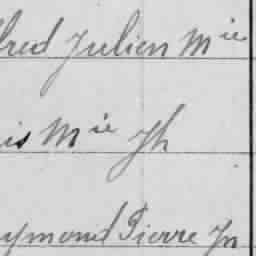 lfred Julien Mie
is Mie Jh
aymond Pierre Jn